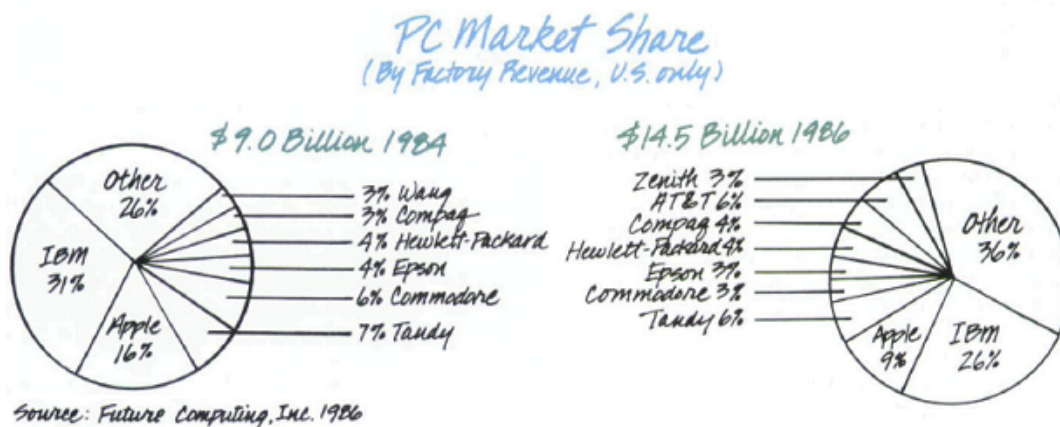 PC Market Share
(By Factory Revenue, U.S. only)
$9.0 Billion 1984
Other
26%
IBM
31%
Apple
16%
3% Wang
3% Compaq
4% Hewlett-Packard
4% Epson
6% Commodore
7% Tandy
$14.5 Billion 1986
Zenith 3%
AT&T 6%
Compaq 4%
Hewlett-Packard 4%
Epson 3%
Commodore 3%
Tandy 6%
Other
36%
Apple
9%
IBM
26%
Source: Future Computing, Inc. 1986